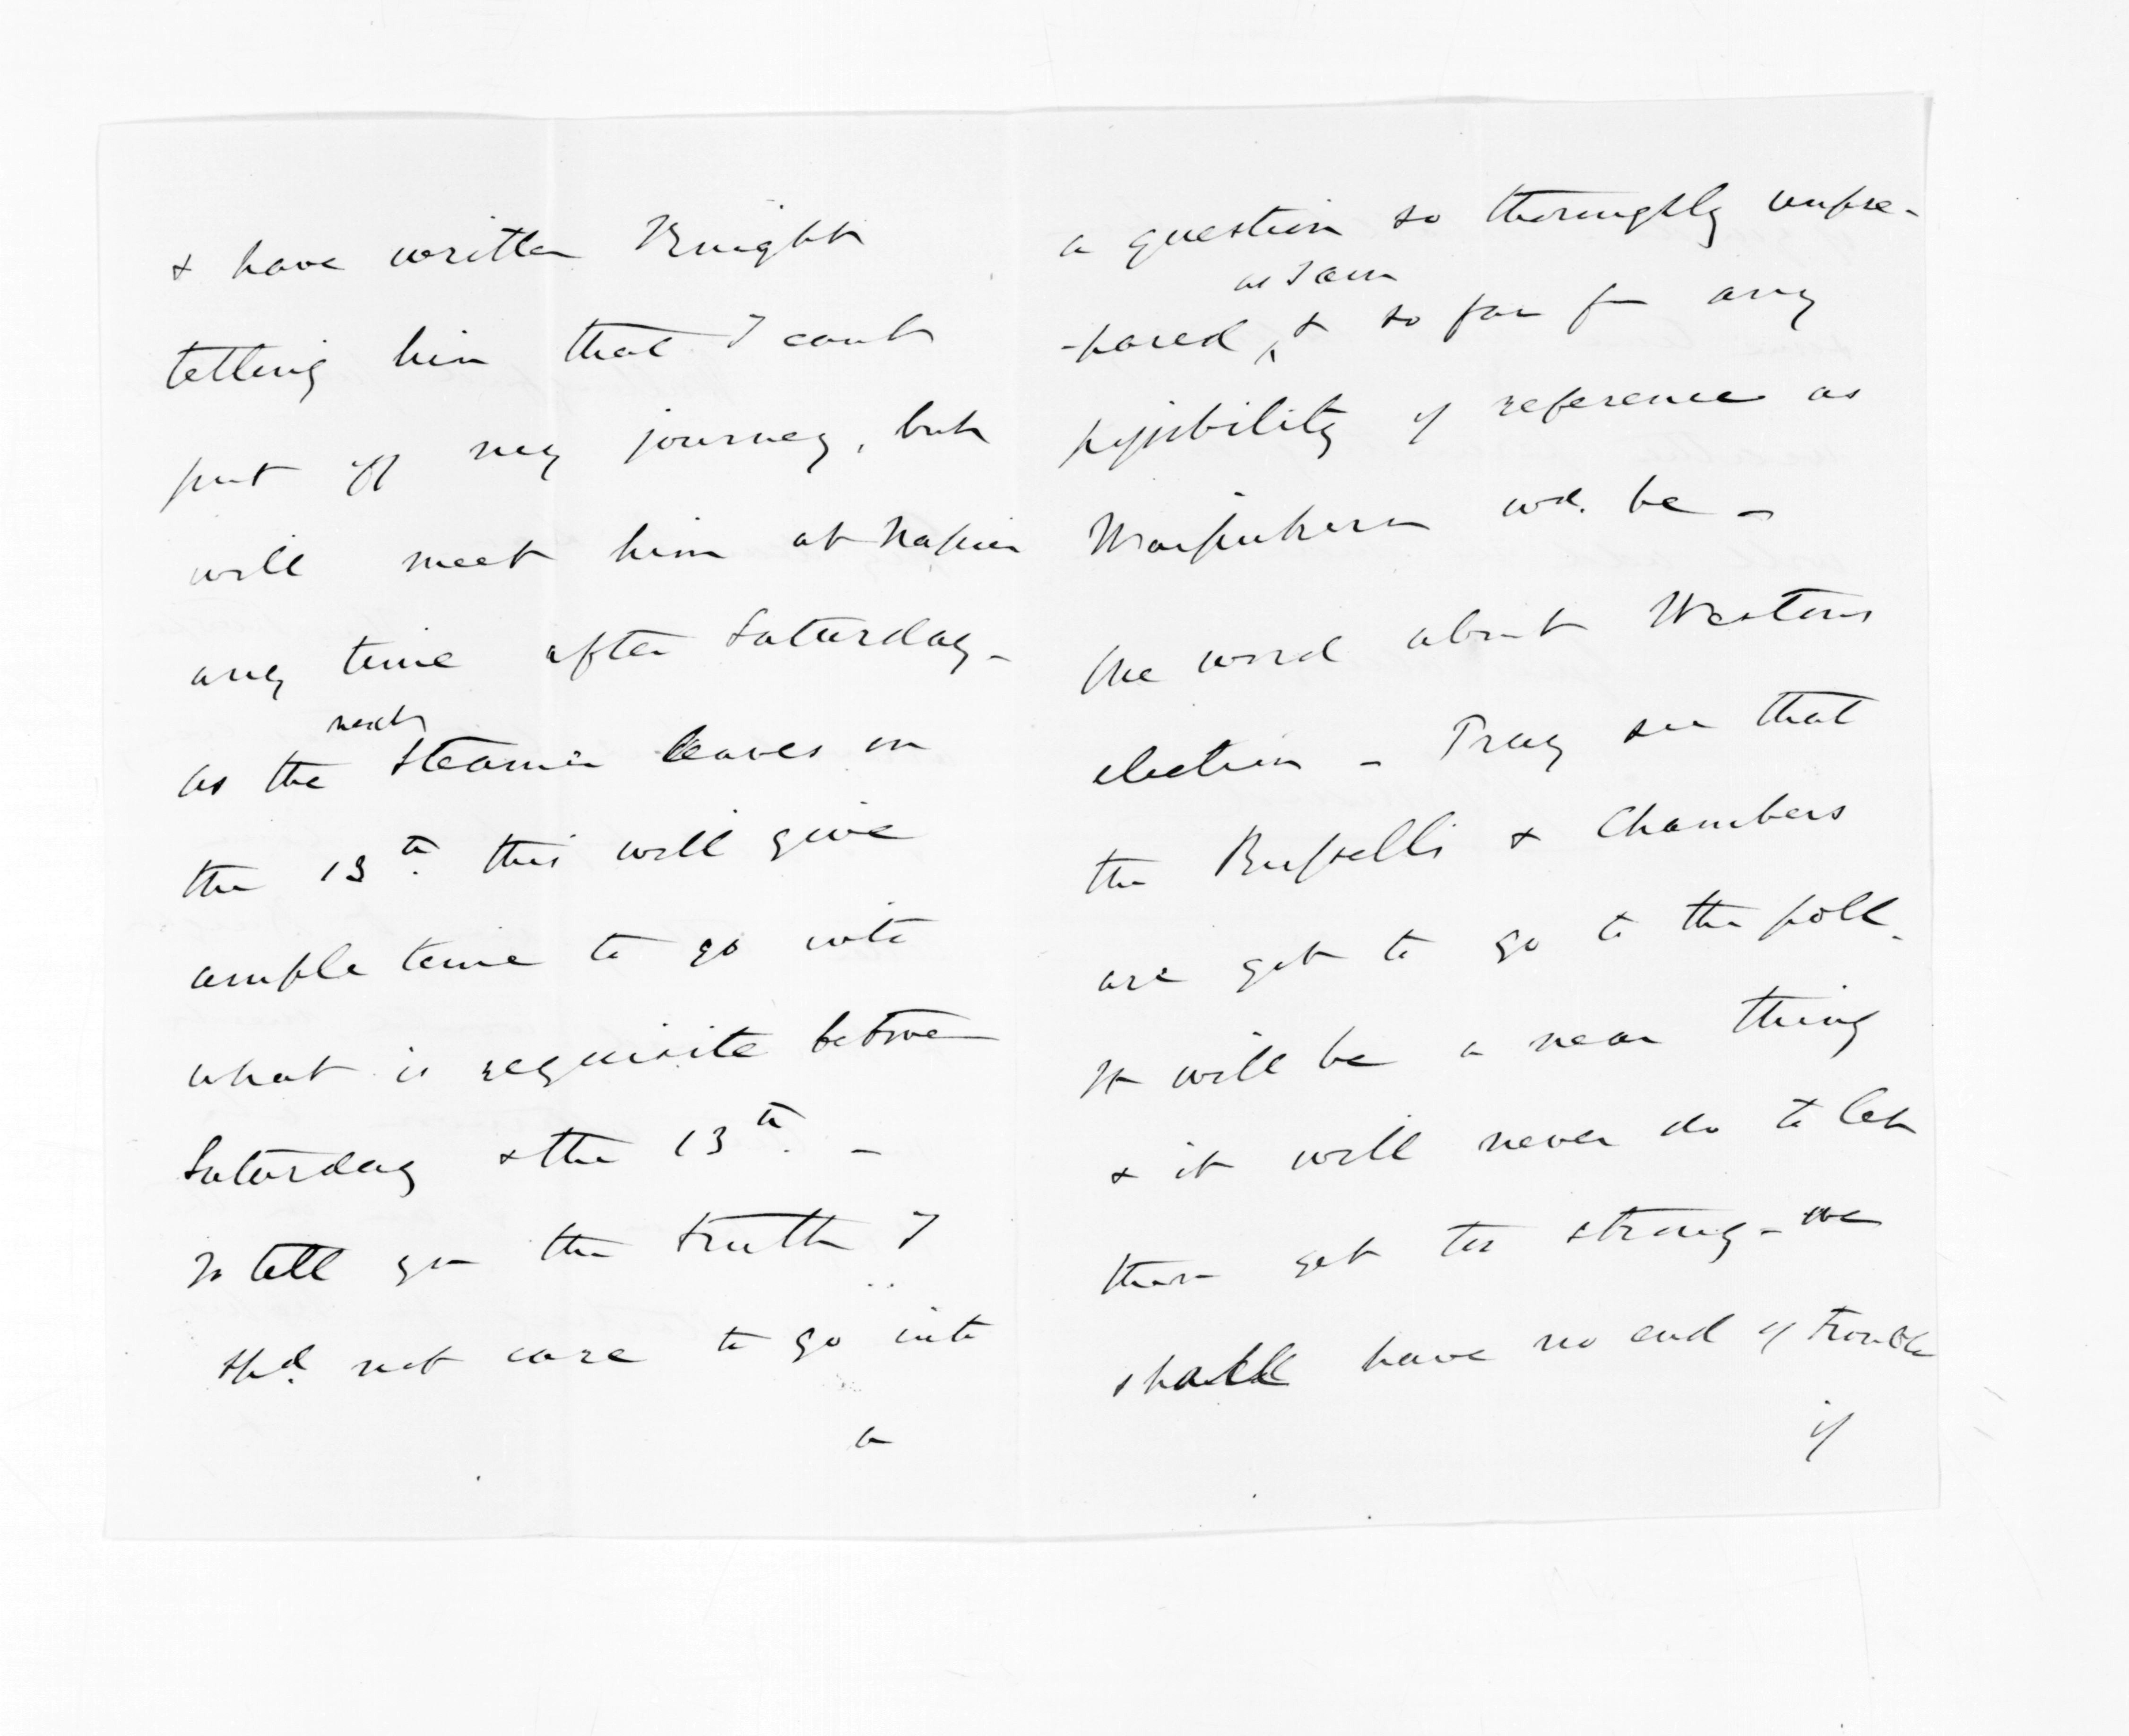 & have written Knight
telling him that I cant
put off my journey, but
will meet him at Napier
any time after Saturday -
next
as the Steamer leaves on
the 13th. this will give
ample time to go into
what is requisite between
Saturday & the 13th. -
To tell you the truth I
shd. not care to go into
a
a question so thoroughly unpre-
as I am
-pared & so far fm any
possibility of reference as
Waipukurau wd. be -
One word about Western
election - Pray see that
the Russells & Chambers
are got to go to the poll.
It will be a near thing
& it will never do to let
them get too strong - we
shall have no end of trouble
if